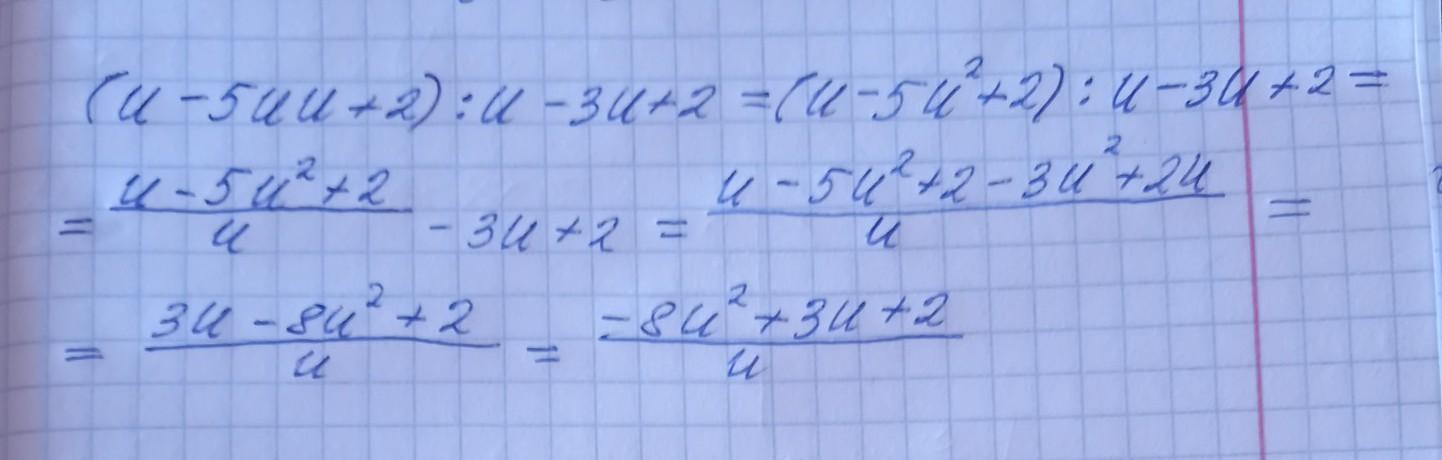 (u - 5uu + 2) : u - 3u + 2 = (u - 5u² + 2) : u - 3u + 2 =
= \frac{u - 5u² + 2}{u} - 3u + 2 = \frac{u - 5u² + 2 - 3u² + 2u}{u} =
= \frac{3u - 8u² + 2}{u} = \frac{-8u² + 3u + 2}{u}